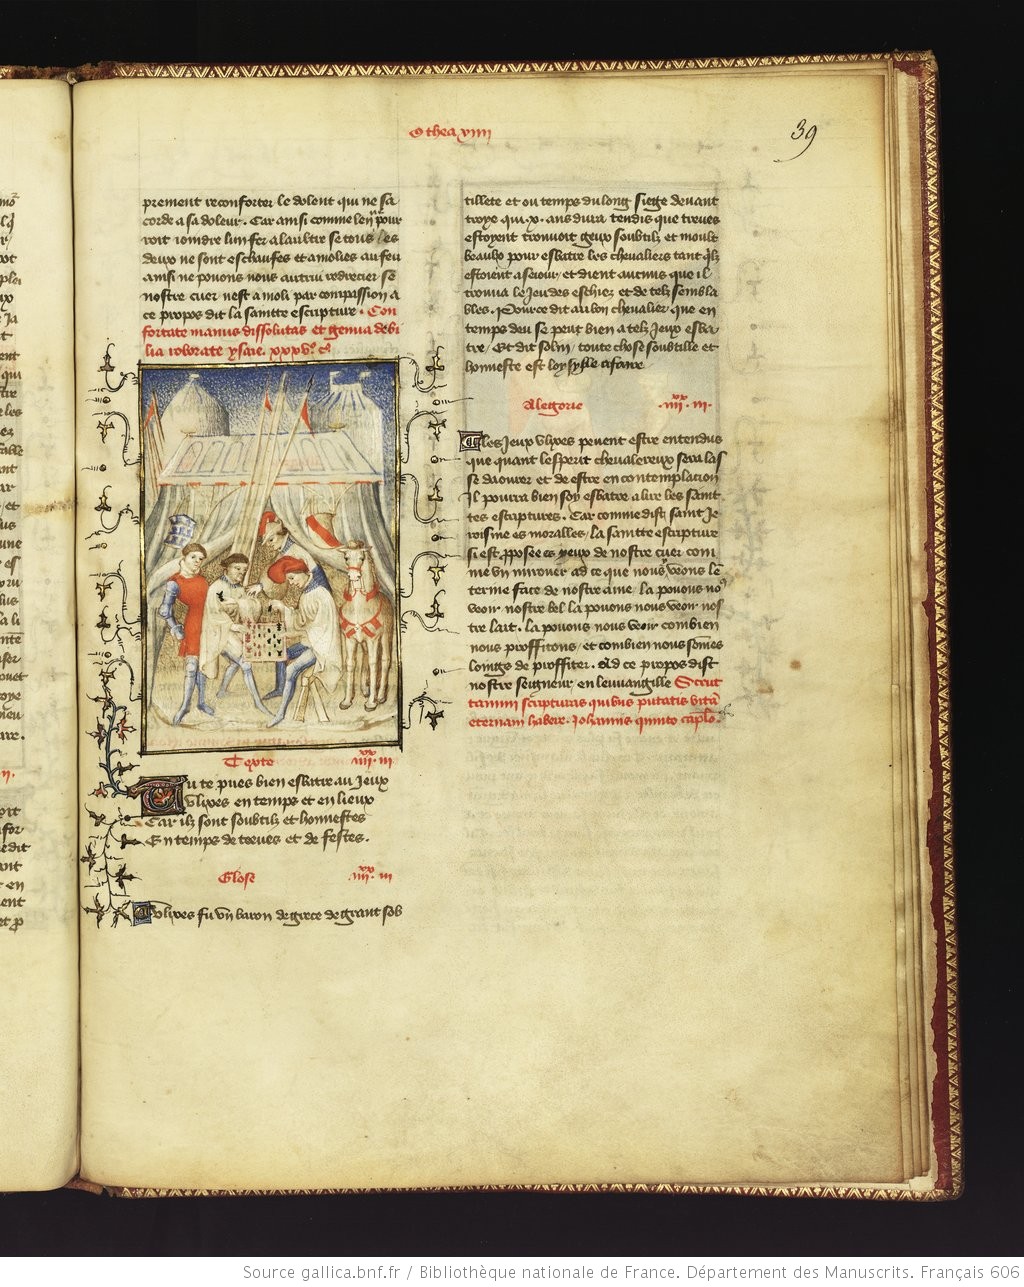 Othea xiiii
39
prement reconforter le dolent qui ne sa
corde a sa doleur. Car ainsi comme len pour
roit ioindre lun fer a laultre se tous les
deux ne sont eschaufes et amolies au feu
ainsi ne pouons nous autrui redrecier se
nostre cuer nest amoli par compassion a
ce propos dit la saintte escripture. Con
fortate manus dissolutas et genua debi
lia roborate ysaie. xxxvº. cº
Texte .iiii. iii
Tu te pues bien esbatre au jeux
Vlixes en temps et en lieux
Car ilz sont soubtilz et honnestes
En temps de treues et de festes.
Glose .iiii. iii
Vlixes fu vn baron de grece de grant sob
tillete et ou temps du long siege deuant
troye qui .x. ans dura tendis que treues
estoyent trouuoit geux soubtilz et moult
beaulx pour esbatre les cheualiers tant quilz
estoient a seiour, et dient aucuns que il
trouua le jeu des eschiez et de telz sembla
bles. Pource dit au bon cheualier que en
temps deu se peut bien a telz jeux esba
tre, Et dit solin, toute chose soubtille et
honneste est loysible a faire
Alegorie .iiii. iii.
Les jeux vlixes peuent estre entendus
que quant lesperit cheualereux sera las
se daourer et de estre en contemplacion
Il pourra bien soy esbatre a lire les saint
tes escriptures. Car comme dist saint Je
roisme es moralles, la saintte escripture
si est proposee es yeux de nostre cuer com
me vn mirouer ad ce que nous veons len
terme face de nostre ame, la pouons no9
veoir nostre bel la pouons nous veoir nos
tre lait. la pouons nous veoir combien
nous proffitons, et combien nous sommes
loings de proffiter. Ad ce propos dist
nostre seigneur, en leuuangille Scrut
tamini scripturas quibus putatis vitam
eternam habere. Johannis quinto caplo.
Source gallica.bnf.fr / Bibliothèque nationale de France. Département des Manuscrits. Français 606